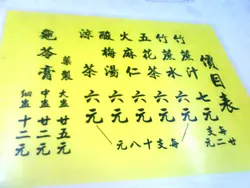 價目表
竹蔗汁 七元
每支廿二元
竹蔗水 六元
五花茶 六元
火麻仁 六元
酸梅湯 六元
涼茶 六元
每支十八元
龜苓膏
藥製
大盅 廿五元
中盅 廿二元
細盅 十二元